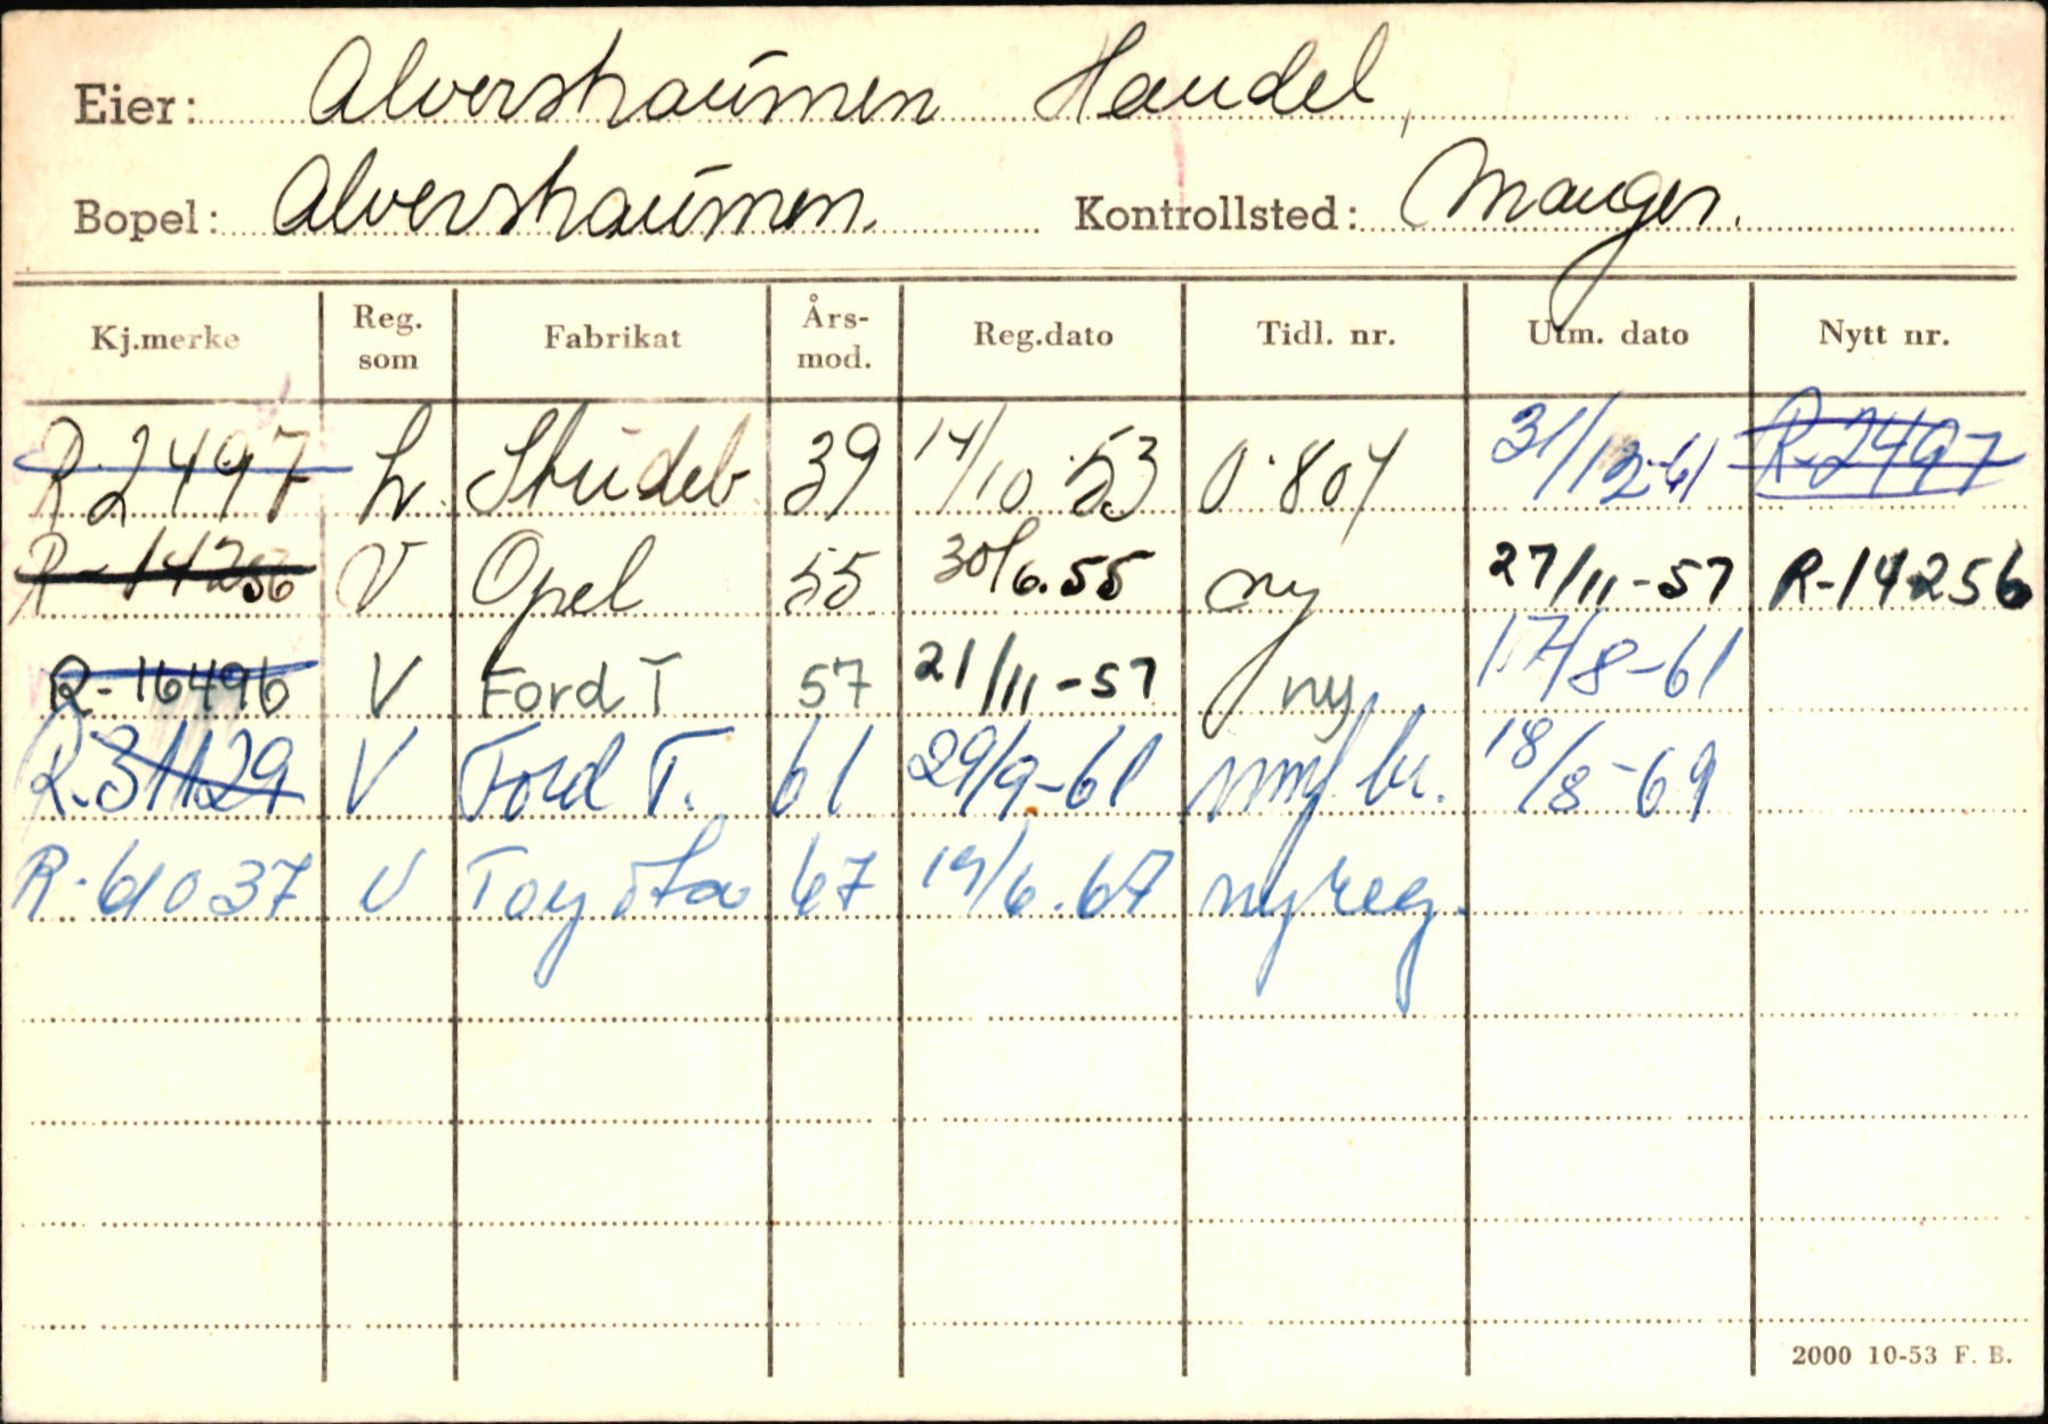 Eier: Alvershaumen Handel,
Bopel: Alvershaumen. Kontrollsted: Manger.
Kj.merke Reg. som Fabrikat Års-mod. Reg.dato Tidl. nr. Utm. dato Nytt nr.
R-2497 L. Studeb. 39 14/10-53 O-804 31/12-61 R-2497
R-14256 V Opel 55 30/6.55 ny 27/11-57 R-14256
R-16496 V Ford T 57 21/11-57 ny 17/8-61
R-31129 V Ford T. 61 29/9-61 18/8-69
R-61037 V Toyota 67 19/6.67 nyreg.
2000 10-53 F. B.